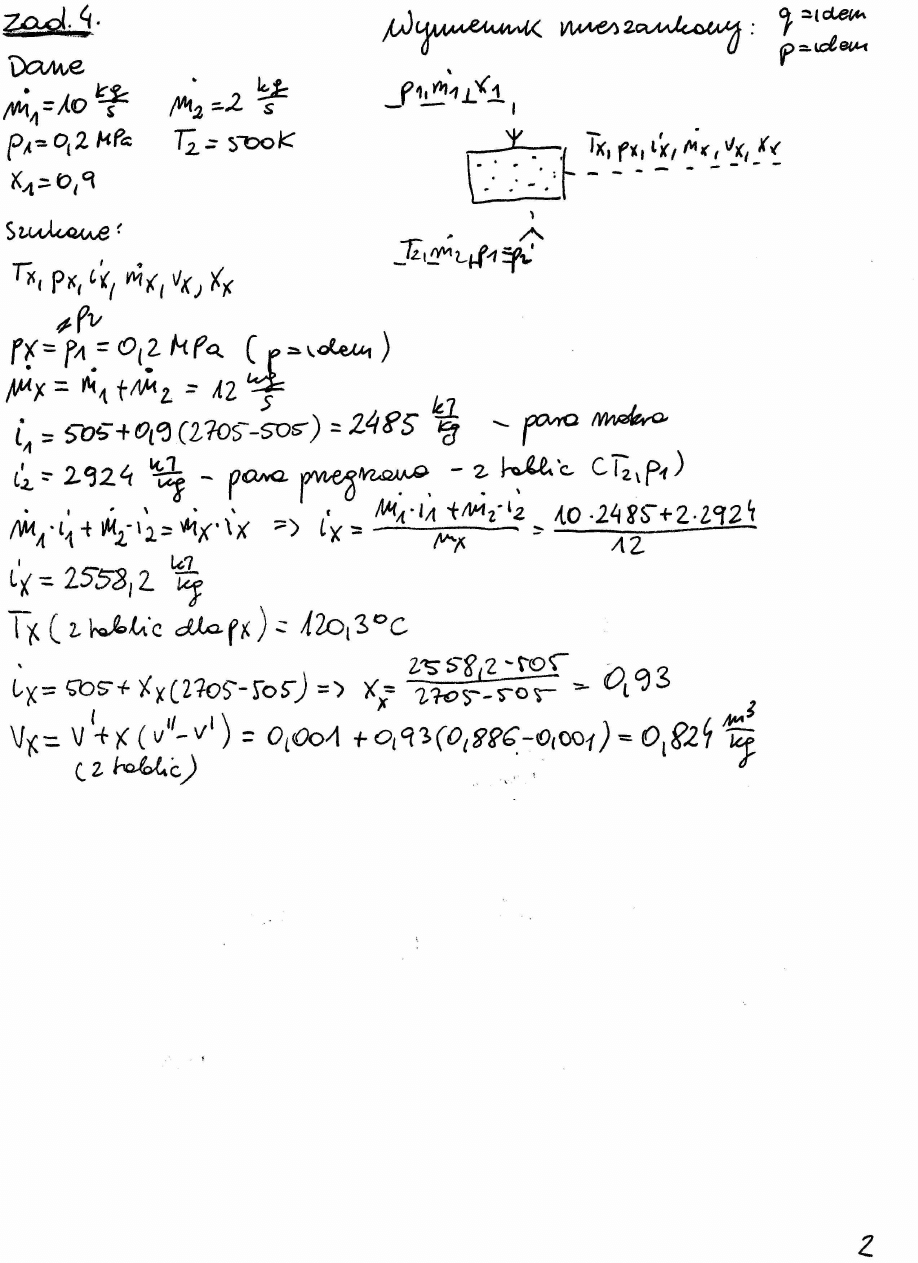 zad. 4.
Wymiennik mieszankowy: q=idem
p=idem
Dane
ṁ₁=10 kg/s ṁ₂=2 kg/s
p₁=0,2 MPa T₂=500K
x₁=0,9
p₁, ṁ₁, x₁
Tx, px, ix, ṁx, vx, xx
T₂, ṁ₂, p₁=p₂
Szukane:
Tx, px, ix, ṁx, vx, xx
=p₂
px=p₁=0,2 MPa (p=idem)
ṁx=ṁ₁+ṁ₂=12 kg/s
i₁=505+0,9(2705-505)=2485 kJ/kg - para mokra
i₂=2924 kJ/kg - para przegrzana - z tablic (T₂, p₁)
ṁ₁·i₁+ṁ₂·i₂=ṁx·ix => ix = (ṁ₁·i₁+ṁ₂·i₂)/ṁx = (10·2485+2·2924)/12
ix=2558,2 kJ/kg
Tx (z tablic dla px)=120,3°C
ix=505+xx(2705-505) => xx = (2558,2-505)/(2705-505) = 0,93
vx=v'+x(v''-v')=0,001+0,93(0,886-0,001)=0,824 m³/kg
(z tablic)
2